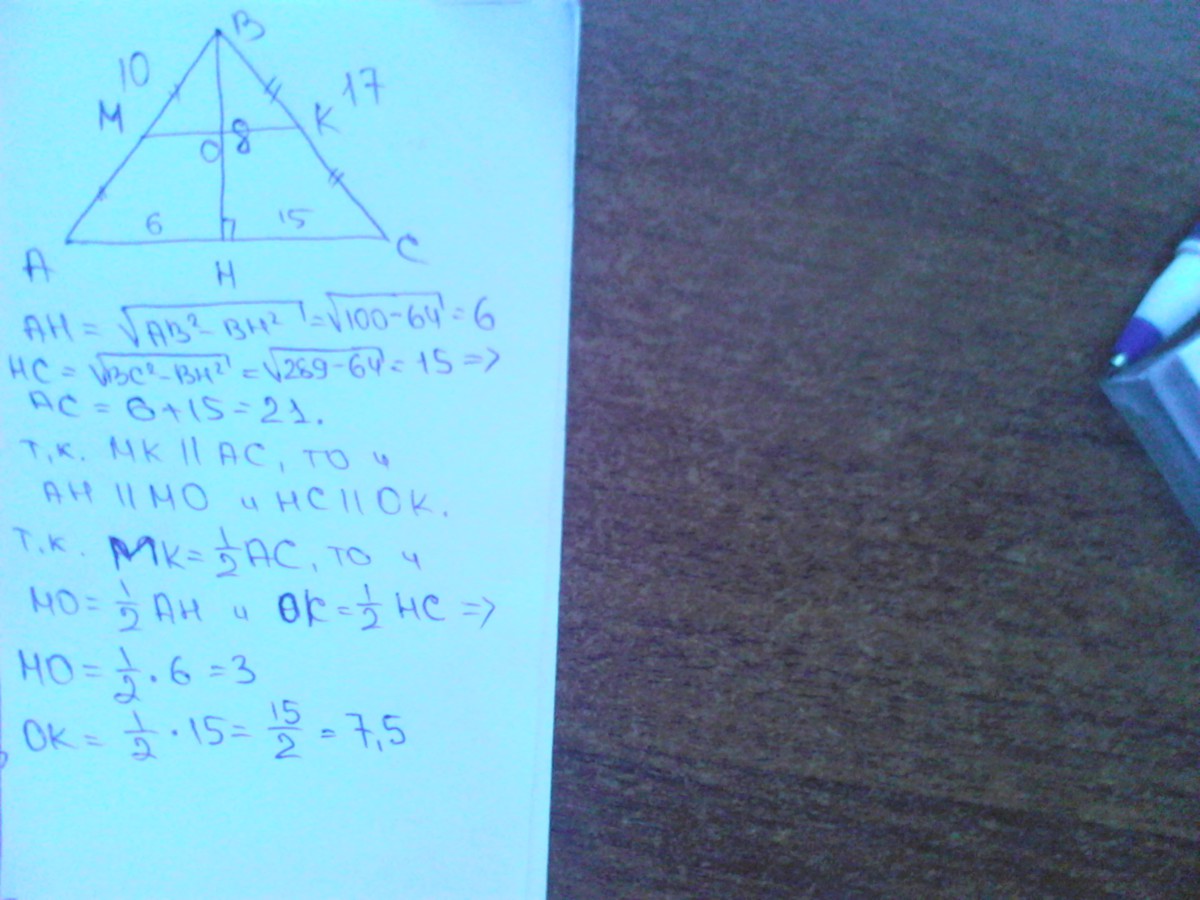 B
10
17
M
K
O 8
6
15
A
H
C
AH = √AB² - BH² = √100-64 = 6
HC = √BC² - BH² = √289-64 = 15 =>
AC = 6+15 = 21.
т.к. MK || AC, то и
AH || MO и HC || OK.
т.к. MK = 1/2 AC, то и
MO = 1/2 AH и OK = 1/2 HC =>
MO = 1/2 · 6 = 3
OK = 1/2 · 15 = 15/2 = 7,5